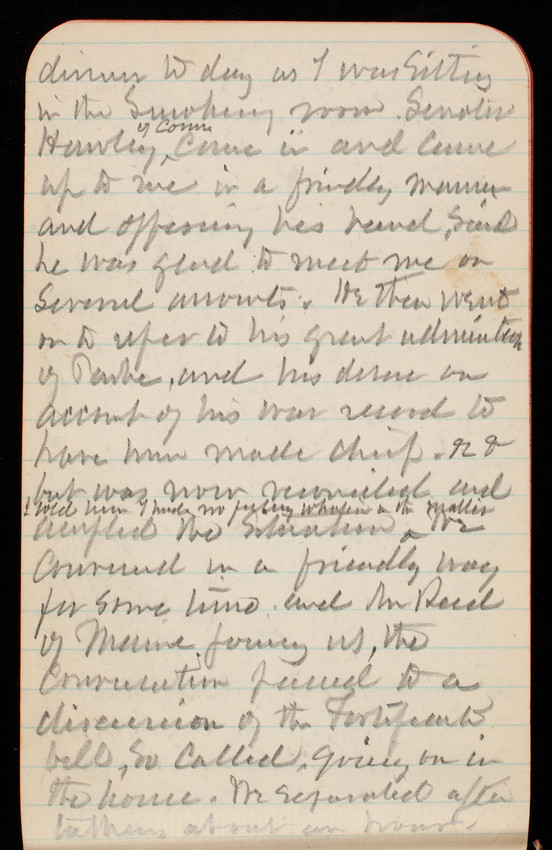 dinner to day as I was sitting
in the Smoking room. Senator
of Conn
Hawley, came in and came
up to me in a friendly manner
and offering his hand, said
he was glad to meet me on
several accounts. He then went
on to refer to his great admiration
of Parke, and his desire on
account of his war record to
have him made chief. &c &
but was now reconciled and
I told him I had no feeling whatever in the matter
accepted the situation. We
conversed in a friendly way
for some time and Mr Reed
of Maine joining us, the
conversation passed to a
discussion of the Fortificatn
bill, so called, going on in
the house. We separated after
talking about an hour.